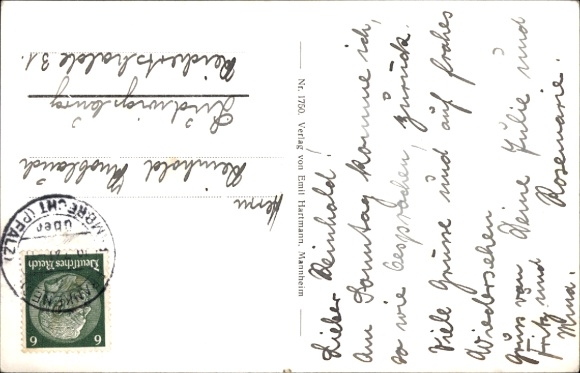 Lieber Reinhold!
Am Sonntag komme ich,
so wie besprochen, zurück.
Viele Grüsse und auf frohes
Wiedersehen
Deine Julie und
Gruss von
Fritz und Rosemarie.
Nr. 1750. Verlag von Emil Hartmann, Mannheim
Herrn
Reinhold Knoblauch
Ludwigsburg
Reichertshalde 31.
MBRECHT (PFALZ)
über
Deutsches Reich
6 6